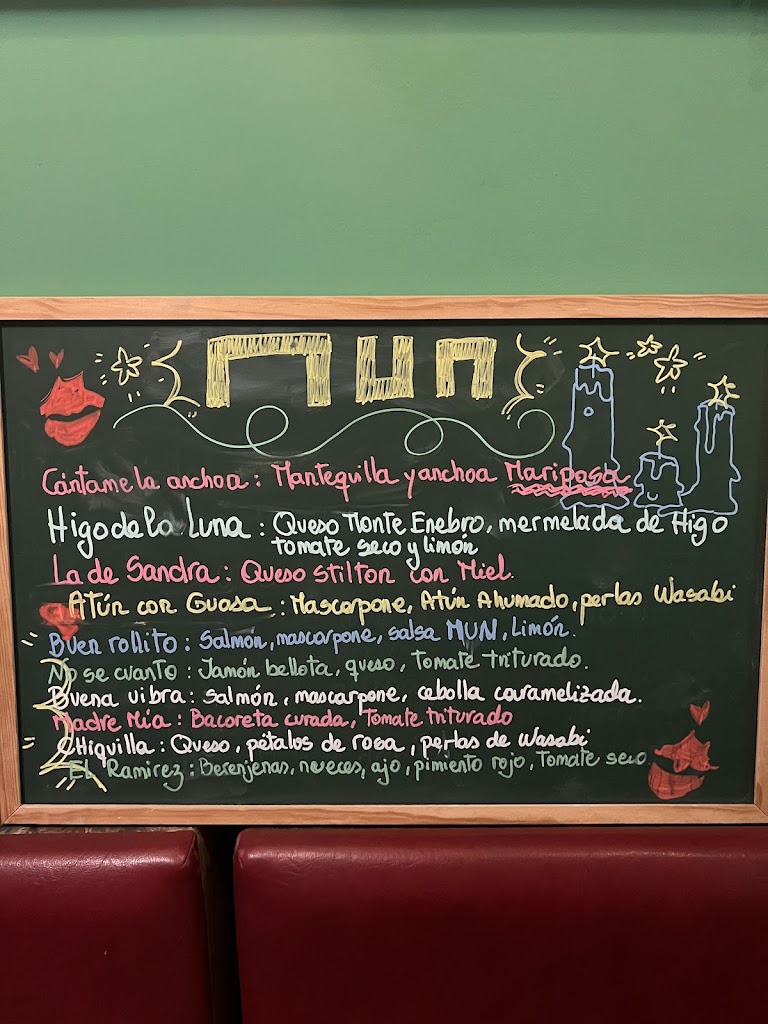 MUN
Cántame la anchoa : Mantequilla y anchoa Mariposa
Higo de la Luna : Queso Monte Enebro, mermelada de Higo
tomate seco y limón
La de Sandra : Queso Stilton con Miel.
Atún con Guasa : Mascarpone, Atún Ahumado, perlas Wasabi
Buen rollito : Salmón, mascarpone, salsa MUN, Limón.
No se cuanto : Jamón bellota, queso, Tomate triturado.
Buena vibra : salmón, mascarpone, cebolla caramelizada.
Madre Mía : Bacoreta curada, Tomate triturado
Chiquilla : Queso, pétalos de rosa, perlas de Wasabi
EL Ramirez : Berenjenas, nueces, ajo, pimiento rojo, Tomate seco